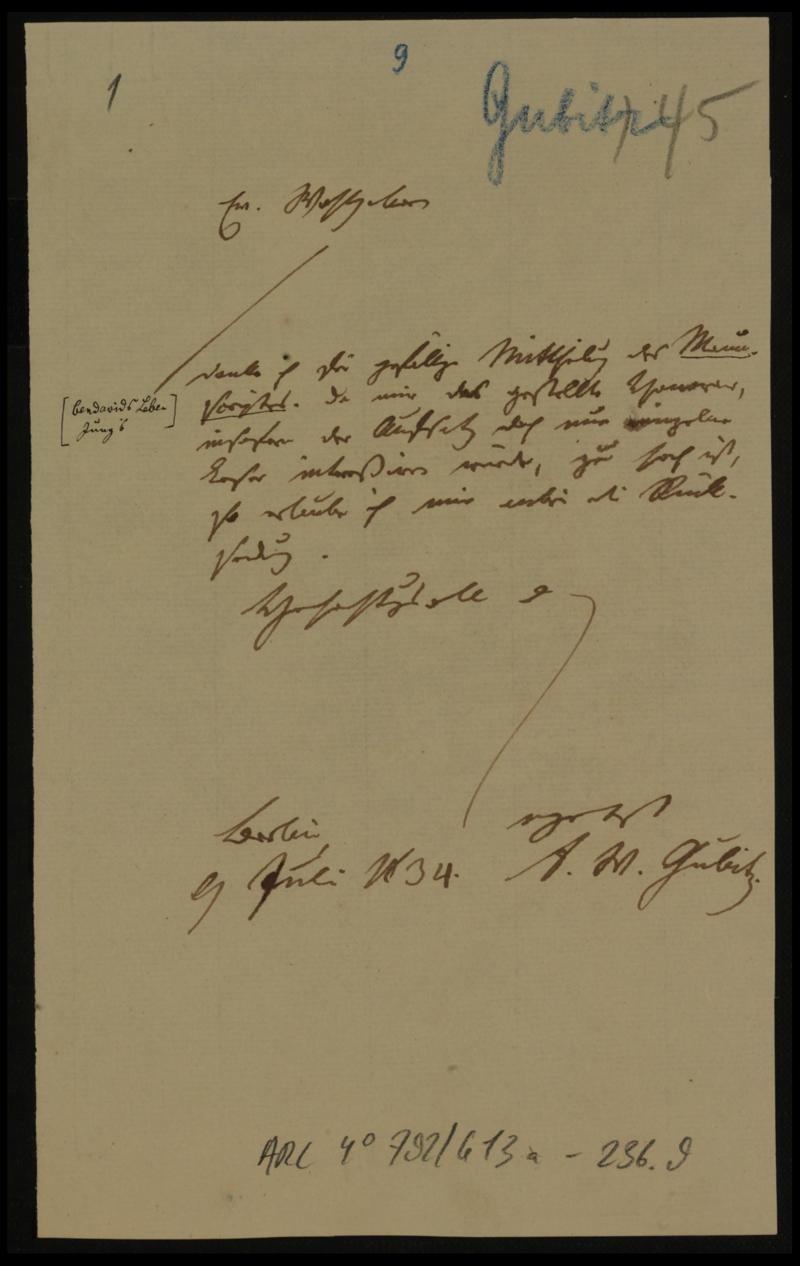 9
1
Gubitz 45
Ew. Wohlgeboren
danke ich die gefällige Mittheilung des Manu-
scriptes. Da mir das gestellte Honorar,
[Bendavids Leben
Zunz's]
insofern der Aufsatz doch nur einzelne
Leser interessiren würde, zu hoch ist,
so erlaube ich mir anbei die Rück-
sendung.
Hochachtungsvoll
Berlin,
9 Juli 1834.
ergebenst
F. W. Gubitz.
ARC 4° 792/G13a - 236.9